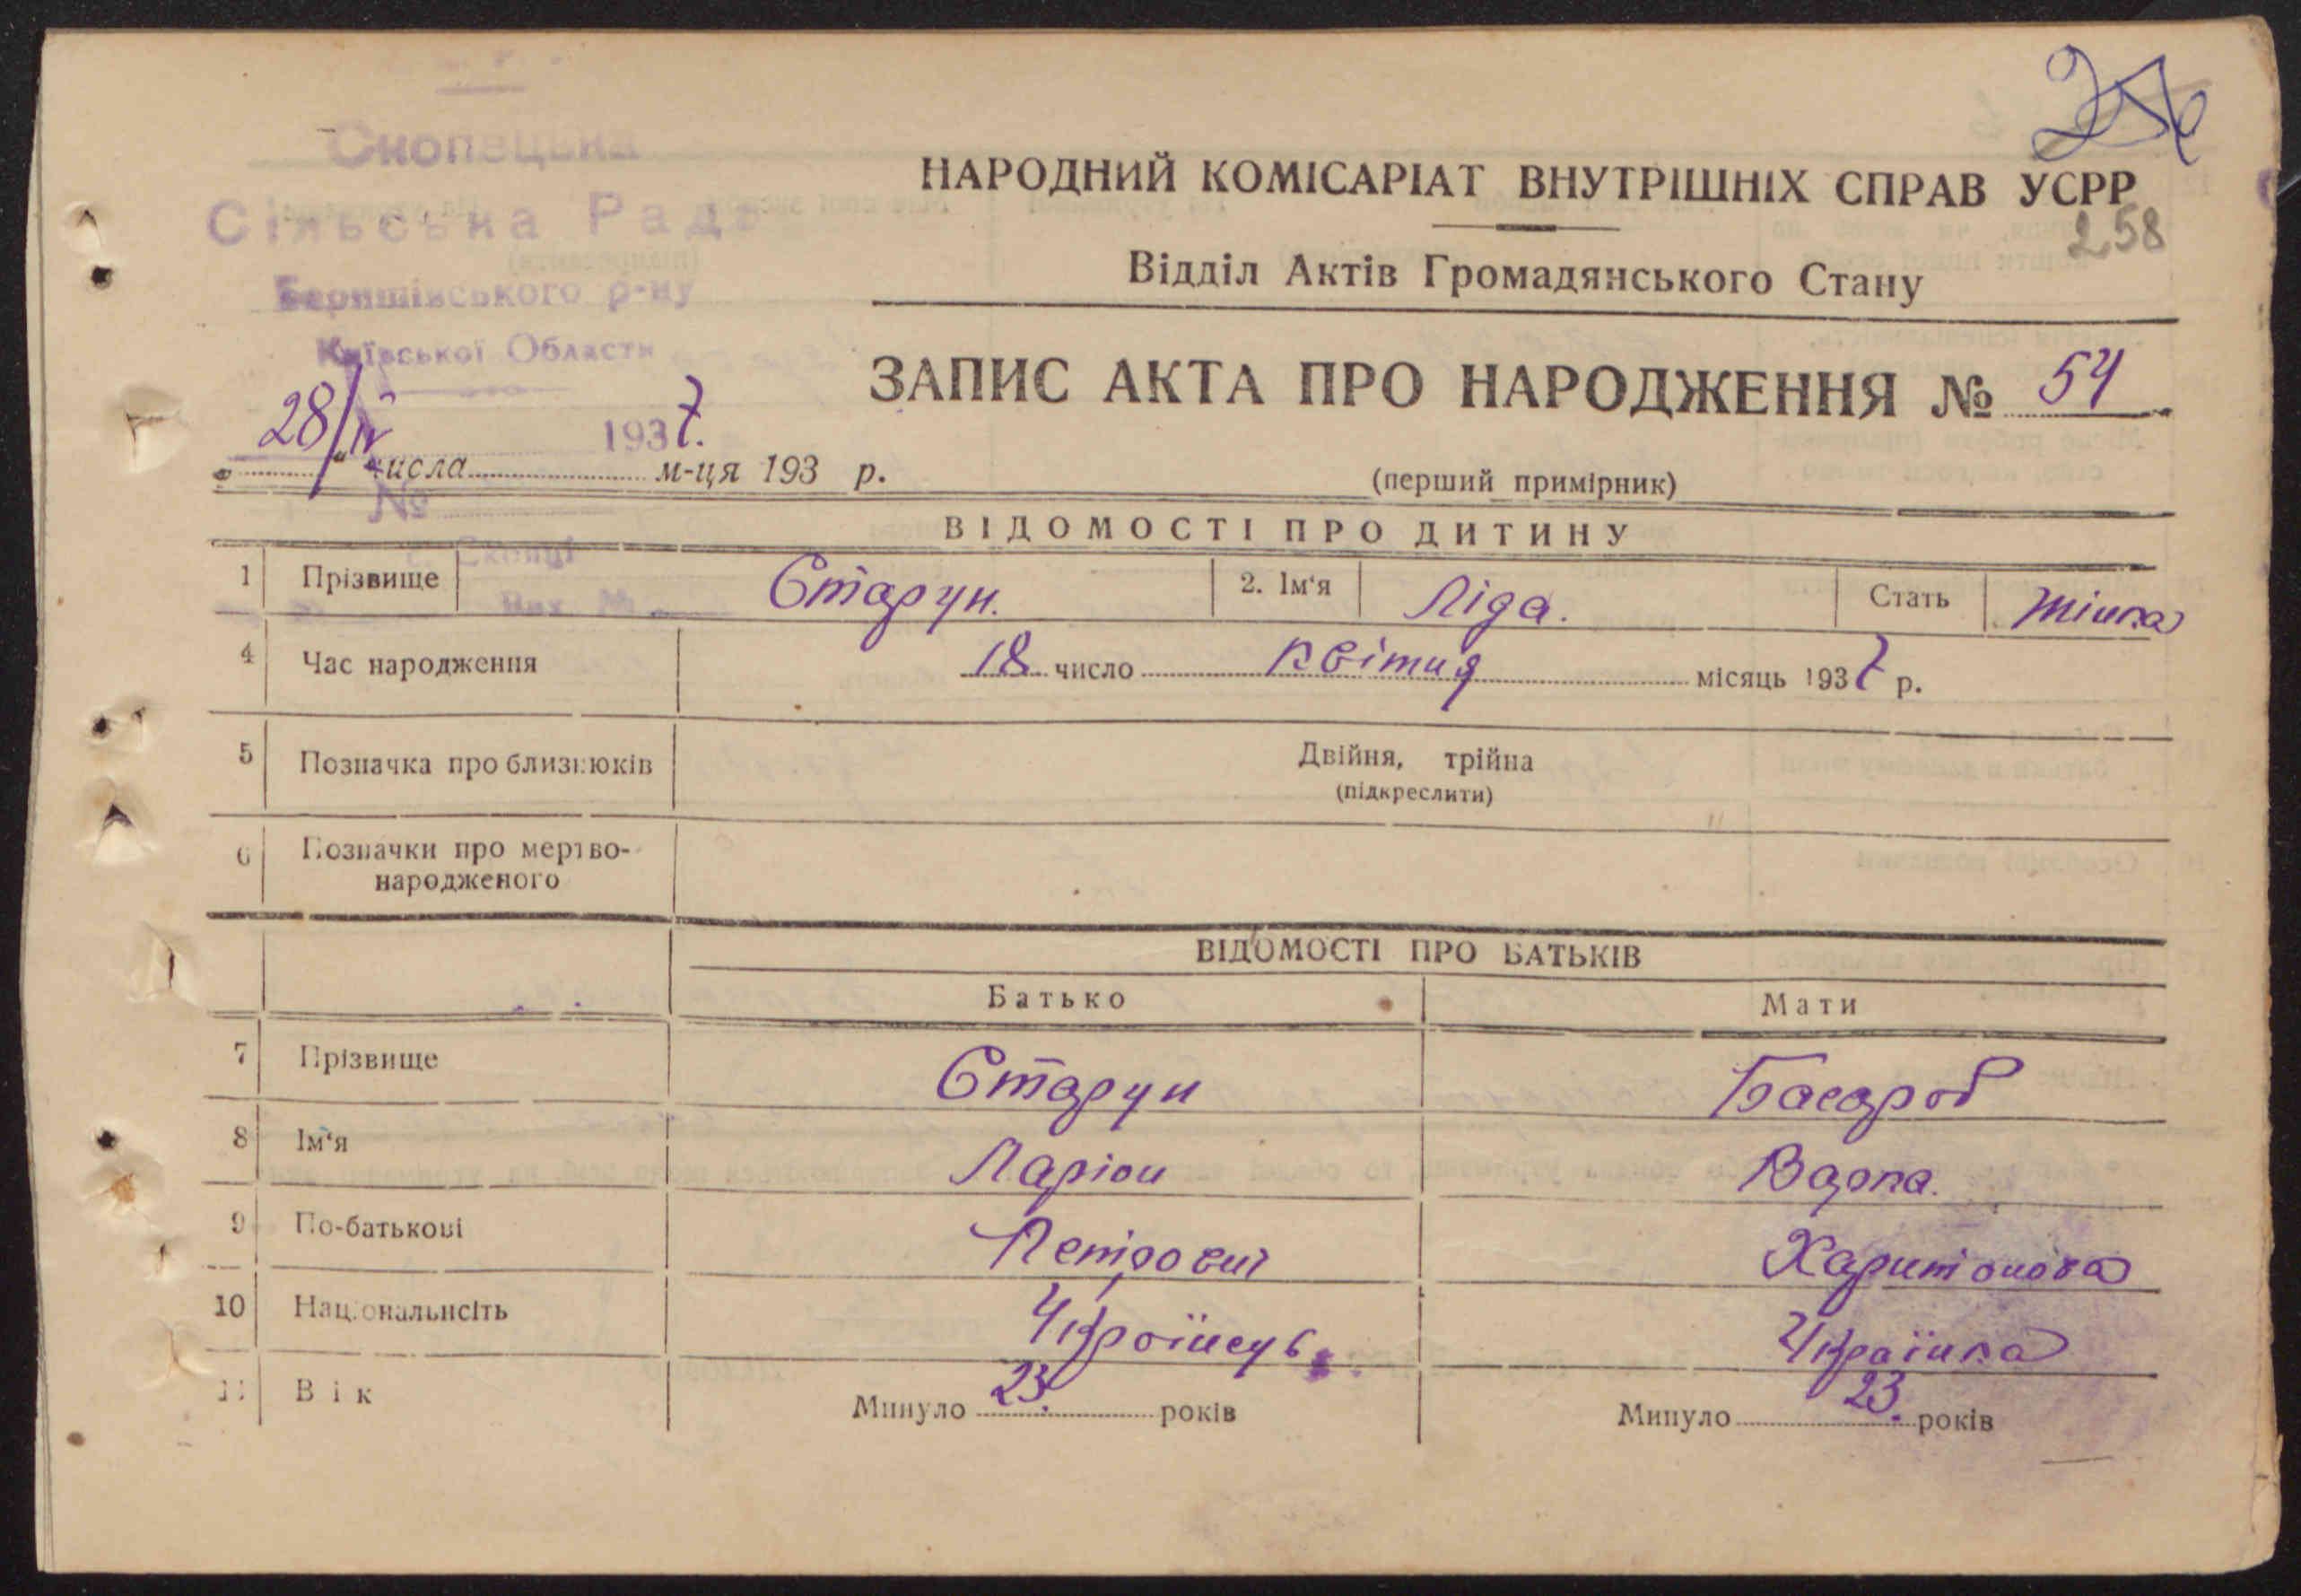 Скопецька
Сільська Рада
Баришівського р-ну
Київської Області
28/IV 1937.
„ “ числа м-ця 193 р.
№
с. Скопці
Вих. №
256
258
НАРОДНИЙ КОМІСАРІАТ ВНУТРІШНІХ СПРАВ УСРР
Відділ Актів Громадянського Стану
ЗАПИС АКТА ПРО НАРОДЖЕННЯ № 54
(перший примірник)
ВІДОМОСТІ ПРО ДИТИНУ
1 Прізвище Старун. 2. Ім‘я Ліда. Стать жінка
4 Час народження 18 число квітня місяць 1937 р.
5 Позначка про близнюків Двійня, трійна
(підкреслити)
6 Позначки про мертво-
народженого
ВІДОМОСТІ ПРО БАТЬКІВ
Батько Мати
7 Прізвище Старун Басараб
8 Ім‘я Ларіон Варка.
9 По-батькові Петрович Харитонова
10 Національнсіть Українець Українка
11 Вік Минуло 23. років Минуло 23. років